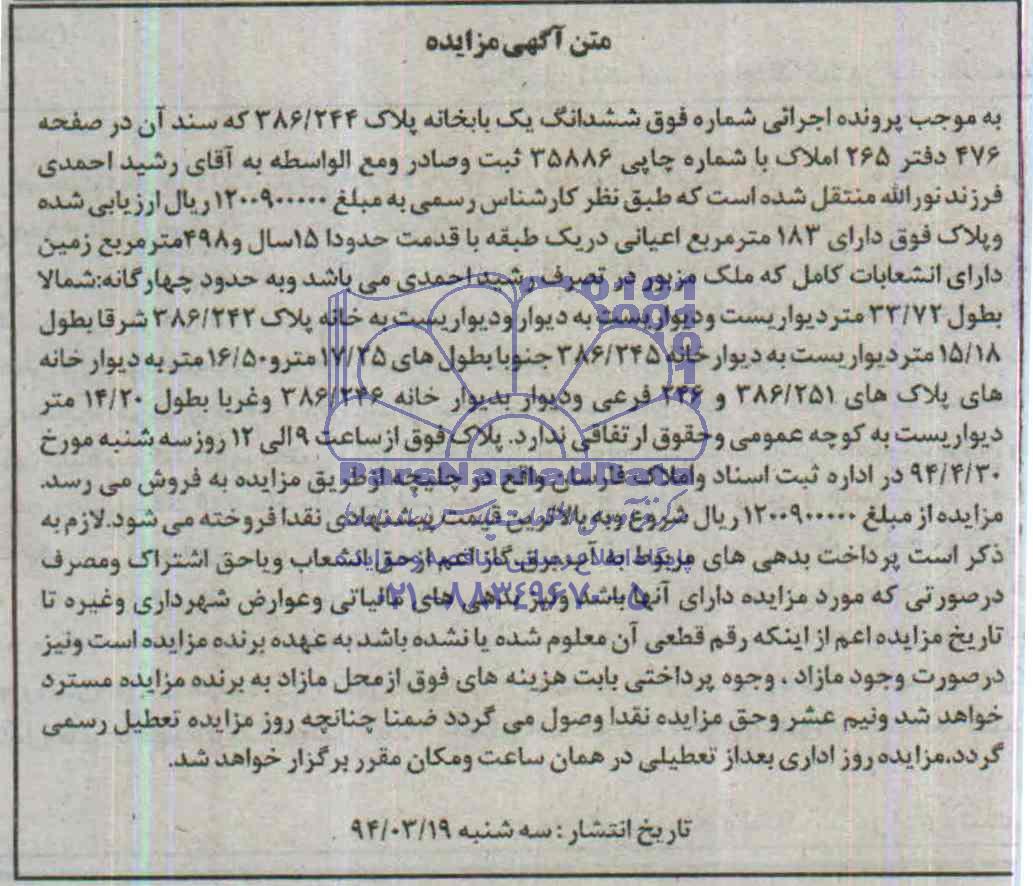 متن آگهی مزایده
به موجب پرونده اجرائی شماره فوق ششدانگ یک بابخانه پلاک ۳۸۶/۲۴۴ که سند آن در صفحه
۴۷۶ دفتر ۲۶۵ املاک با شماره چاپی ۳۵۸۸۶ ثبت وصادر ومع الواسطه به آقای رشید احمدی
فرزند نورالله منتقل شده است که طبق نظر کارشناس رسمی به مبلغ ۱۲۰۰۹۰۰۰۰۰ ریال ارزیابی شده
وپلاک فوق دارای ۱۸۳ مترمربع اعیانی دریک طبقه با قدمت حدودا ۱۵سال و۴۹۸مترمربع زمین
دارای انشعابات کامل که ملک مزبور در تصرف رشید احمدی می باشد وبه حدود چهارگانه:شمالا
بطول ۳۳/۷۲ متر دیواریست ودیواریست به دیوار ودیواریست به خانه پلاک ۳۸۶/۲۴۲ شرقا بطول
۱۵/۱۸ متر دیواریست به دیوار خانه ۳۸۶/۲۴۵ جنوبا بطول های ۱۷/۲۵ مترو۱۶/۵۰ متر به دیوار خانه
های پلاک های ۳۸۶/۲۵۱ و ۲۴۶ فرعی ودیوار بدیوار خانه ۳۸۶/۲۴۶ وغربا بطول ۱۴/۲۰ متر
دیواریست به کوچه عمومی وحقوق ارتفاقی ندارد. پلاک فوق از ساعت ۹ الی ۱۲ روز سه شنبه مورخ
۹۴/۴/۳۰ در اداره ثبت اسناد واملاک فارسان واقع در چلیچه ازطریق مزایده به فروش می رسد.
مزایده از مبلغ ۱۲۰۰۹۰۰۰۰۰ ریال شروع وبه بالاترین قیمت پیشنهادی نقدا فروخته می شود.لازم به
ذکر است پرداخت بدهی های مربوط به آب، برق، گاز اعم ازحق انشعاب ویاحق اشتراک ومصرف
درصورتی که مورد مزایده دارای آنها باشد ونیز بدهی های مالیاتی وعوارض شهرداری وغیره تا
تاریخ مزایده اعم از اینکه رقم قطعی آن معلوم شده یا نشده باشد به عهده برنده مزایده است ونیز
درصورت وجود مازاد ، وجوه پرداختی بابت هزینه های فوق ازمحل مازاد به برنده مزایده مسترد
خواهد شد ونیم عشر وحق مزایده نقدا وصول می گردد ضمنا چنانچه روز مزایده تعطیل رسمی
گردد،مزایده روز اداری بعداز تعطیلی در همان ساعت ومکان مقرر برگزار خواهد شد.
تاریخ انتشار : سه شنبه ۹۴/۰۳/۱۹
ParsNamadData
۰۲۱-۸۸۳۴۹۶۷۰-۵